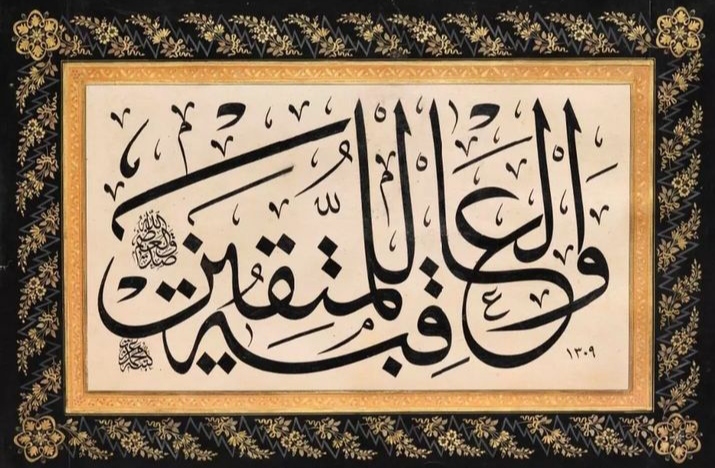 وَالْعَاقِبَةُ لِلْمُتَّقِينَ
صدق الله العظيم
١٣٠٩